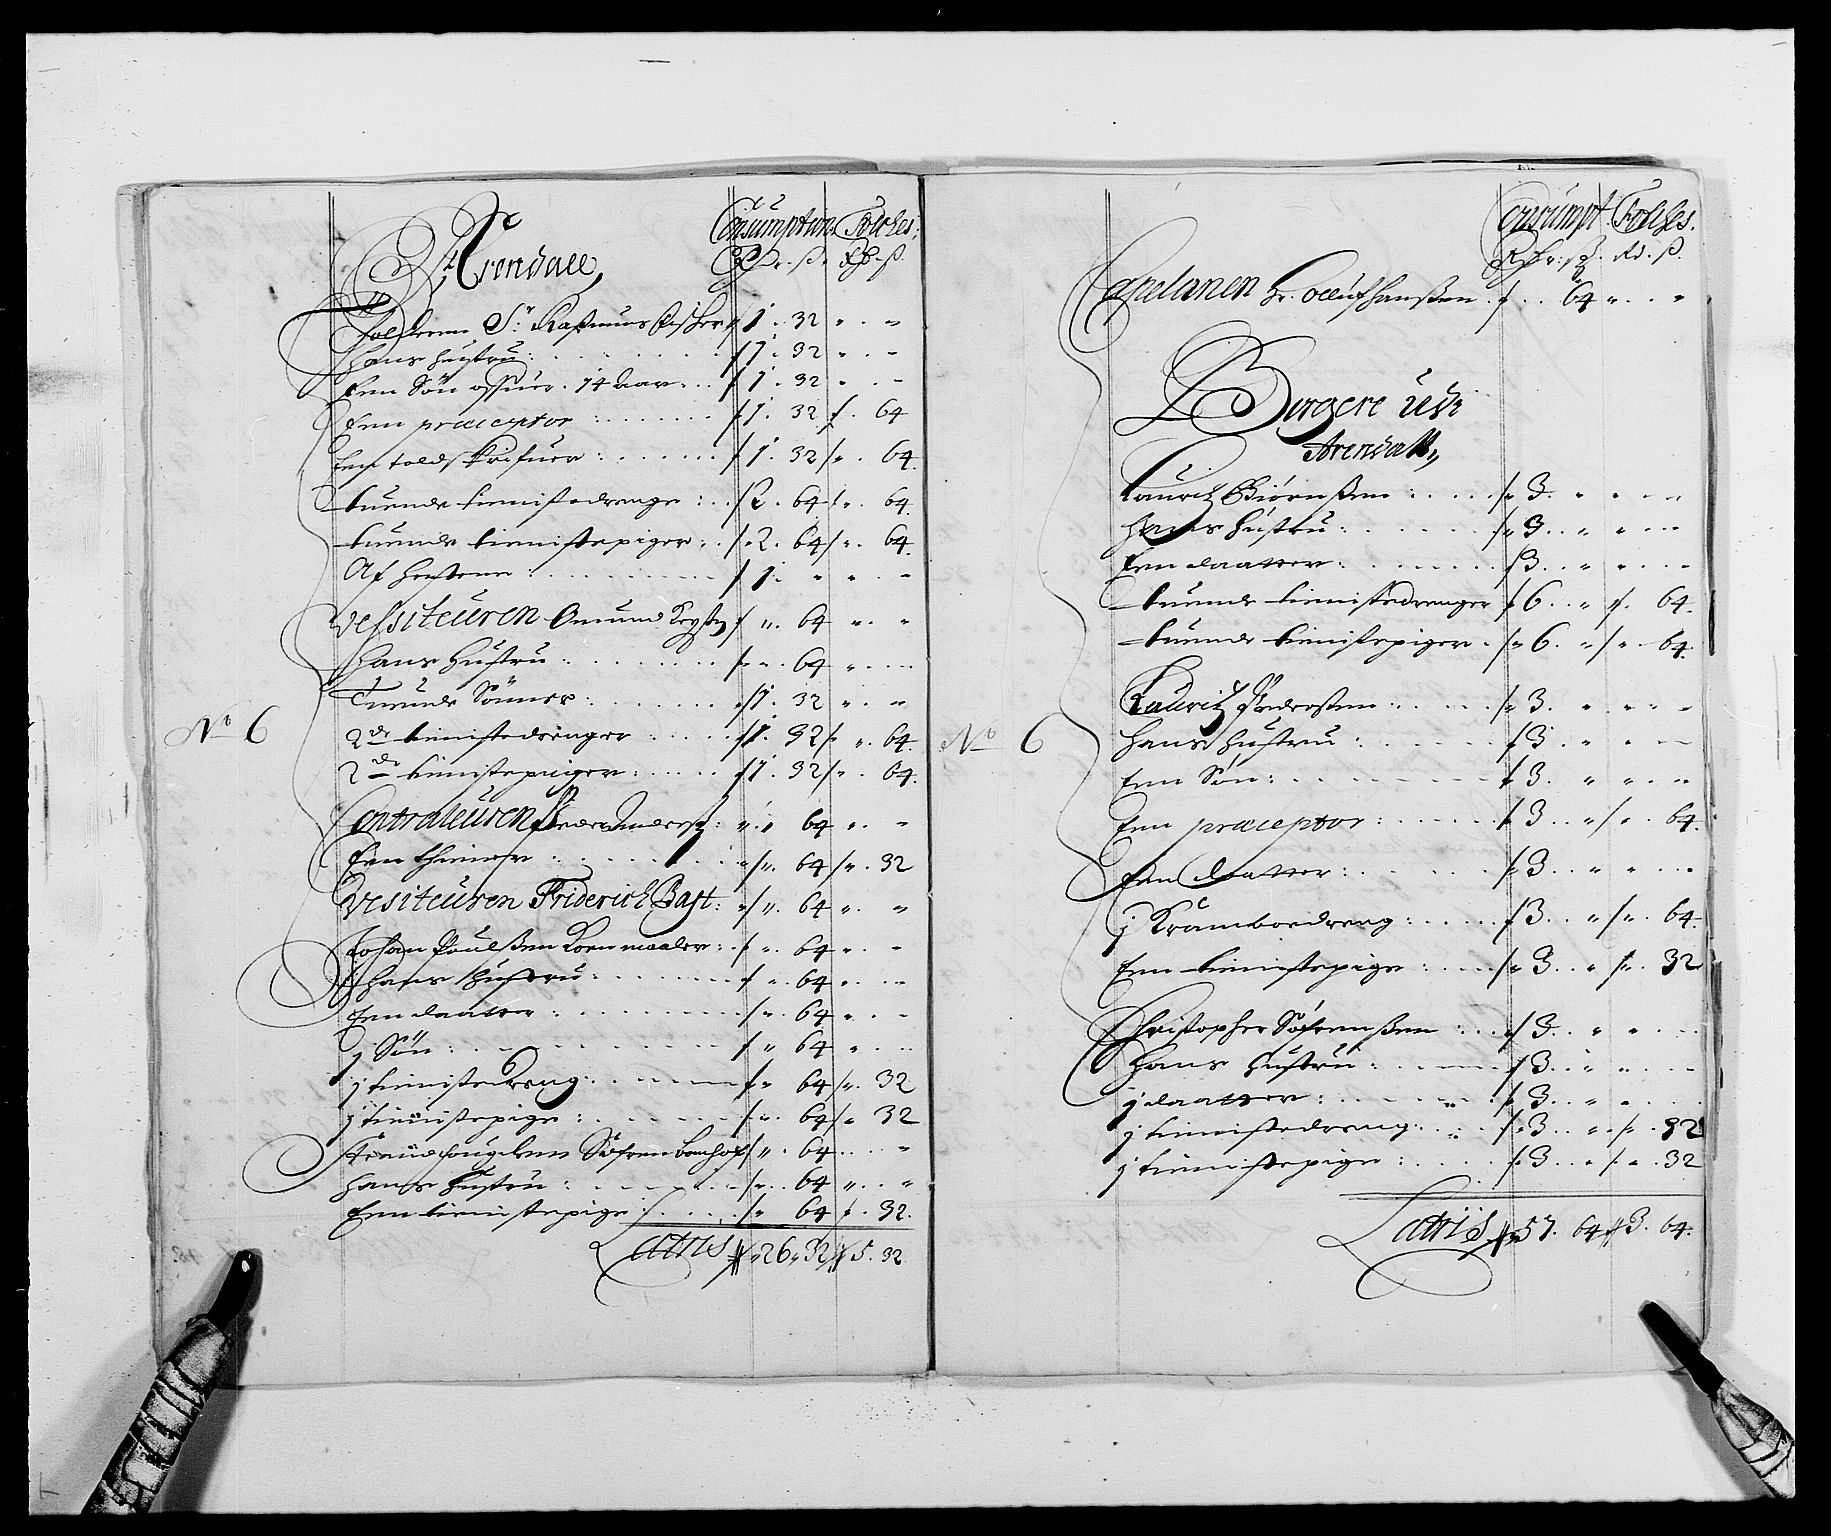 Consumption Folches.
Rdr. ß. Rd. ß.
Arendall
Tolderen Sr. Rasmus 1. 32 " . "
Hans Hustru 1. 32 " . "
Een Søn ofuer 14 Aar 1. 32 " . "
Een præceptor 1. 32 . 64
Een toldskrifuer 1. 32 " . 64
tuende tienistedrenge 2. 64 " . 64
tuende tienistepiger 2. 64 " . 64
Af hestene 1. " " "
Vesiteuren Amund " . 64 " . "
Hans Hustru " . 64 " . "
Tuende Sønner 1. 32 " . "
No 6
2de tienistedrenger 1. 32 " . 64
2de tienistepiger 1. 32 " . 64
Contraleuren Peder " . 64 " . "
Een thiener " . 64 " . 32
Vesiteuren Friderich Bast " . 64 " . "
Johan Poulßen Kornmaaler " . 64 " . "
Hans Hustru " . 64 " . "
Een daatter " . 64 " . "
j Søn " 64 " . "
j tienistedreng " 64 " . 32
j tienistepige " 64 " 32
Søfren " . 64 . . "
Hans Hustru " . 64 " . "
Een tienistepige " 64 . 32.
Latus 26 " 32 5. 32
Consumpt. Folches.
Rdr: ß. Rd. ß.
Capelanen Hr. Olluf Hanßen . . 64 " . . "
Borgere udi
Arendall
Lauritz Biørnßen 3. " " "
Hans Hustru 3. " " "
Een daatter 3. " " "
tuende tienistedrenger 6. " . 64.
tuende tienistepiger 6. " " . 64.
Lauritz Pederßen 3. " " "
No 6
Hans Hustru 3. " " "
Een Søn 3. " " "
Een præceptor 3. " " . 64.
Een daatter 3. " " "
j Kramboedreng 3. " " . 64.
Een tienistepige 3. " " . 32
Christopher Søfrenßen 3. " " "
Hans Hustru 3. " " "
j daatter 3. " " "
j tienistedreng 3. " " . 32
j tienistepige 3. " " . 32
Latus 57. 64 3. 64.